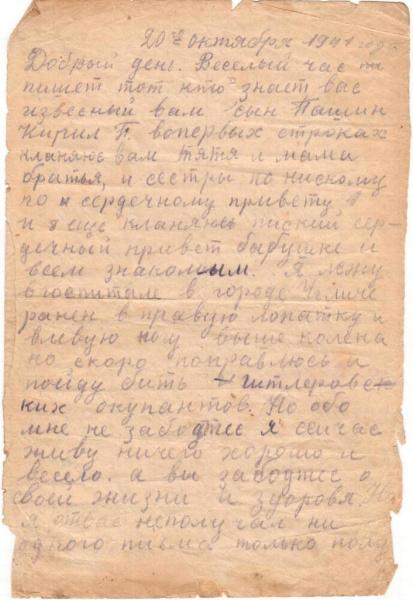 20го октября 1941 года
Добрый день. Веселый час
пишет тот кто знает вас
извесный вам сын Пашин
Кирил П. вопервых строках
кланяюс вам тятя и мама
братья, и сестры по нискому
по сердечному привету
и я еще кланяюсь ниский сер-
дечный привет бабушке и
всем знакомым. Я лежу
в госпитале в городе Угличе
ранен в правую лопатку и
влевую ногу выше колена
но скоро поправлюсь и
пойду бить гитлеровс-
ких окупантов. Но обо
мне не заботтес я сейчас
живу ничего хорошо и
весело. а вы заботтес о
своей жизни и здоровя. Но
я отвас неполучал ни
одного писма только полу